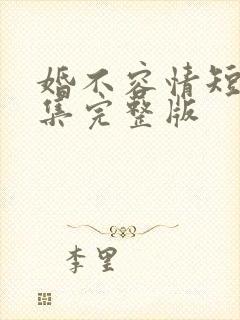 婚不容情短
集完整版
李里